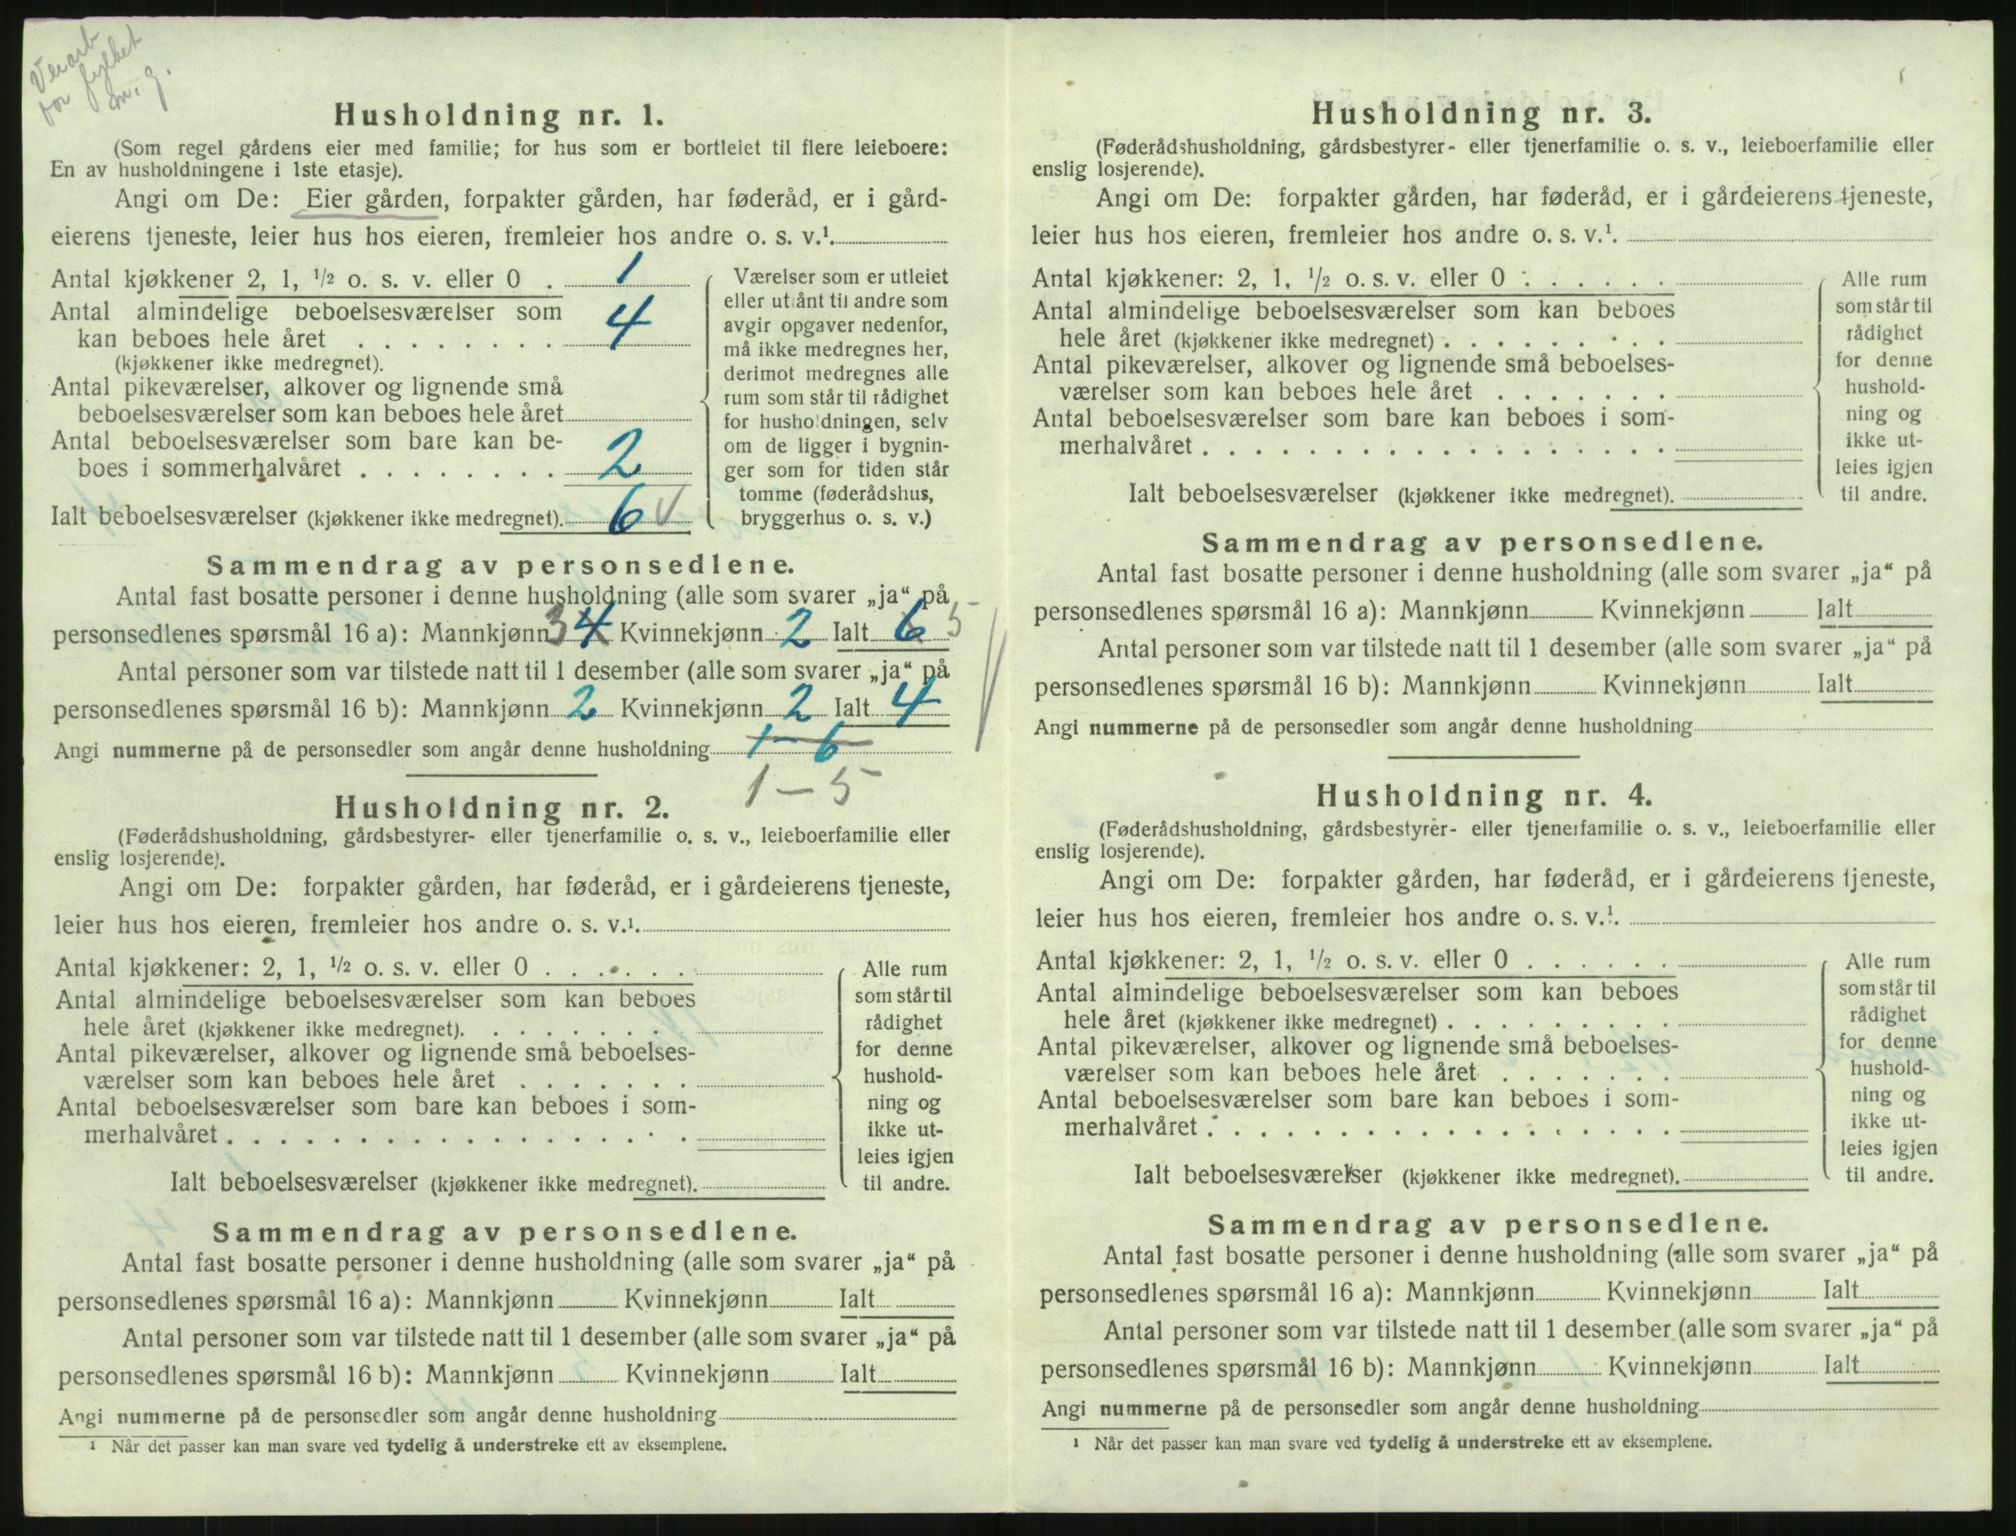 Husholdning nr. 1.
(Som regel gårdens eier med familie; for hus som er bortleiet til flere leieboere:
En av husholdningene i 1ste etasje).
Angi om De: Eier gården, forpakter gården, har føderåd, er i gård-
eierens tjeneste, leier hus hos eieren, fremleier hos andre o. s. v.¹.
Antal kjøkkener 2, 1, ½ o. s. v. eller 0 . 1
Antal almindelige beboelsesværelser som
kan beboes hele året . . . . . . . . 4
(kjøkkener ikke medregnet).
Antal pikeværelser, alkover og lignende små
beboelsesværelser som kan beboes hele året
Antal beboelsesværelser som bare kan be-
boes i sommerhalvåret . . . . . . . . 2
Ialt beboelsesværelser (kjøkkener ikke medregnet). 6 √
Værelser som er utleiet
eller utlånt til andre som
avgir opgaver nedenfor,
må ikke medregnes her,
derimot medregnes alle
rum som står til rådighet
for husholdningen, selv
om de ligger i bygnin-
ger som for tiden står
tomme (føderådshus,
bryggerhus o. s. v.)
Sammendrag av personsedlene.
Antal fast bosatte personer i denne husholdning (alle som svarer „ja“ på
personsedlenes spørsmål 16 a): Mannkjønn 3 4 Kvinnekjønn 2 Ialt 6 5
Antal personer som var tilstede natt til 1 desember (alle som svarer „ja“ på
personsedlenes spørsmål 16 b): Mannkjønn 2 Kvinnekjønn 2 Ialt 4
Angi nummerne på de personsedler som angår denne husholdning 1 - 6
1 - 5
Husholdning nr. 2.
(Føderådshusholdning, gårdsbestyrer- eller tjenerfamilie o. s. v., leieboerfamilie eller
enslig losjerende).
Angi om De: forpakter gården, har føderåd, er i gårdeierens tjeneste,
leier hus hos eieren, fremleier hos andre o. s. v.¹.
Antal kjøkkener: 2, 1, ½ o. s. v. eller 0 . . . . . .
Antal almindelige beboelsesværelser som kan beboes
hele året (kjøkkener ikke medregnet). . . . . . . .
Antal pikeværelser, alkover og lignende små beboelses-
værelser som kan beboes hele året . . . . . . .
Antal beboelsesværelser som bare kan beboes i som-
merhalvåret . . . . . . . . . . . . . . . . . .
Ialt beboelsesværelser (kjøkkener ikke medregnet).
Alle rum
som står til
rådighet
for denne
hushold-
ning og
ikke ut-
leies igjen
til andre.
Sammendrag av personsedlene.
Antal fast bosatte personer i denne husholdning (alle som svarer „ja“ på
personsedlenes spørsmål 16 a): Mannkjønn Kvinnekjønn Ialt
Antal personer som var tilstede natt til 1 desember (alle som svarer „ja“ på
personsedlenes spørsmål 16 b): Mannkjønn Kvinnekjønn Ialt
Angi nummerne på de personsedler som angår denne husholdning
¹ Når det passer kan man svare ved tydelig å understreke ett av eksemplene.
Husholdning nr. 3.
(Føderådshusholdning, gårdsbestyrer- eller tjenerfamilie o. s. v., leieboerfamilie eller
enslig losjerende).
Angi om De: forpakter gården, har føderåd, er i gårdeierens tjeneste,
leier hus hos eieren, fremleier hos andre o. s. v.¹.
Antal kjøkkener: 2, 1, ½ o. s. v. eller 0 . . . . . .
Antal almindelige beboelsesværelser som kan beboes
hele året (kjøkkener ikke medregnet) . . . . . . . . .
Antal pikeværelser, alkover og lignende små beboelses-
værelser som kan beboes hele året . . . . . . .
Antal beboelsesværelser som bare kan beboes i som-
merhalvåret . . . . . . . . . . . . . . . . . .
Ialt beboelsesværelser (kjøkkener ikke medregnet).
Alle rum
som står til
rådighet
for denne
hushold-
ning og
ikke ut-
leies igjen
til andre.
Sammendrag av personsedlene.
Antal fast bosatte personer i denne husholdning (alle som svarer „ja“ på
personsedlenes spørsmål 16 a): Mannkjønn Kvinnekjønn Ialt
Antal personer som var tilstede natt til 1 desember (alle som svarer „ja“ på
personsedlenes spørsmål 16 b): Mannkjønn Kvinnekjønn Ialt
Angi nummerne på de personsedler som angår denne husholdning
Husholdning nr. 4.
(Føderådshusholdning, gårdsbestyrer- eller tjenerfamilie o. s. v., leieboerfamilie eller
enslig losjerende).
Angi om De: forpakter gården, har føderåd, er i gårdeierens tjeneste,
leier hus hos eieren, fremleier hos andre o. s. v.¹.
Antal kjøkkener: 2, 1, ½ o. s. v. eller 0 . . . . . .
Antal almindelige beboelsesværelser som kan beboes
hele året (kjøkkener ikke medregnet) . . . . . . . . .
Antal pikeværelser, alkover og lignende små beboelses-
værelser som kan beboes hele året . . . . . . .
Antal beboelsesværelser som bare kan beboes i som-
merhalvåret . . . . . . . . . . . . . . . . . .
Ialt beboelsesværelser (kjøkkener ikke medregnet).
Alle rum
som står til
rådighet
for denne
hushold-
ning og
ikke ut-
leies igjen
til andre.
Sammendrag av personsedlene.
Antal fast bosatte personer i denne husholdning (alle som svarer „ja“ på
personsedlenes spørsmål 16 a): Mannkjønn Kvinnekjønn Ialt
Antal personer som var tilstede natt til 1 desember (alle som svarer „ja“ på
personsedlenes spørsmål 16 b): Mannkjønn Kvinnekjønn Ialt
Angi nummerne på de personsedler som angår denne husholdning
¹ Når det passer kan man svare ved tydelig å understreke ett av eksemplene.